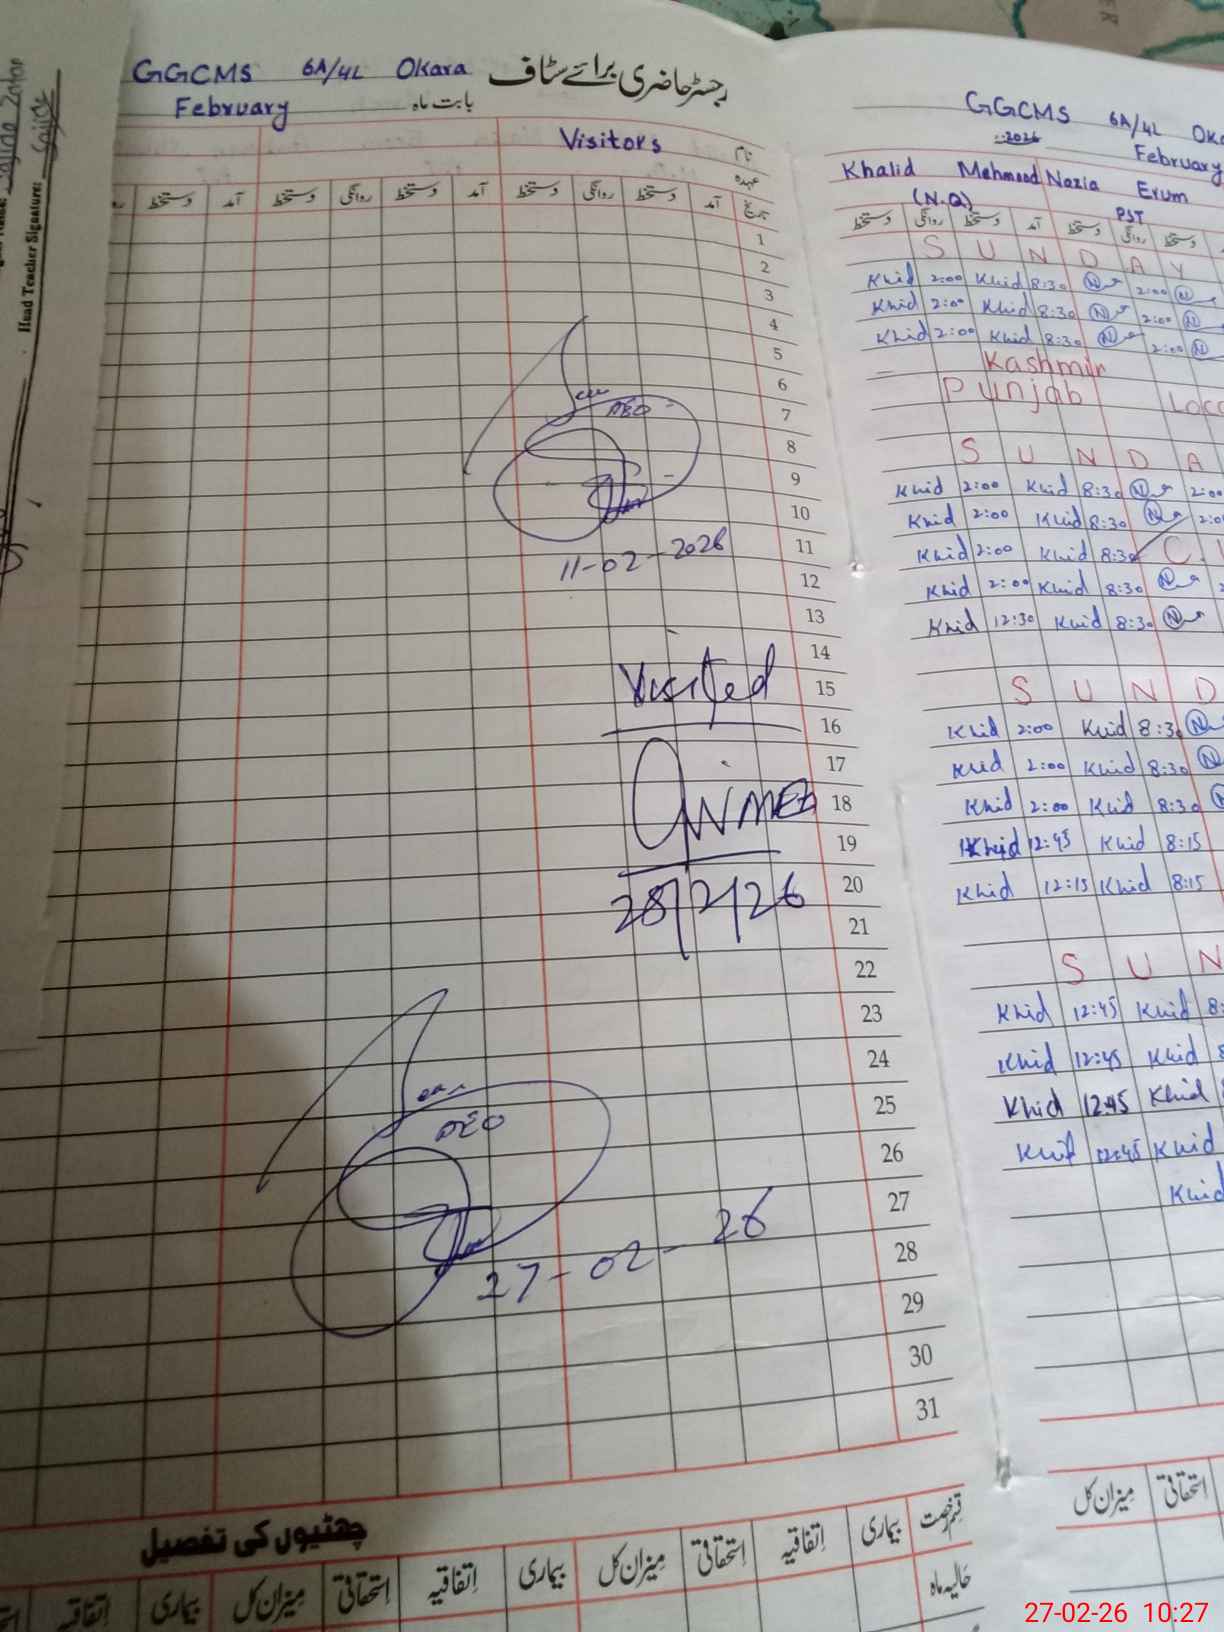 GGCMS 6A/4L Okara رجسٹر حاضری برائے سٹاف
February بابت ماہ
Visitors نام
عہدہ
تاریخ آمد دستخط روانگی دستخط آمد دستخط روانگی دستخط آمد دستخط
1
2
3
4
5
6
7
8
9
10
11
12
13
14
15
16
17
18
19
20
21
22
23
24
25
26
27
28
29
30
31
11-02-2026
Visited
28/2/26
27-02-26
چھٹیوں کی تفصیل
قسم رخصت بیماری اتفاقیہ استحقاقی میزان کل بیماری اتفاقیہ استحقاقی میزان کل بیماری اتفاقیہ
حالیہ ماہ
Head Teacher Signature:
GGCMS 6A/4L
2026 February
Khalid Mehmood Nazia Erum
(N.Q) PST
دستخط روانگی دستخط آمد دستخط روانگی دستخط
SUNDAY
Khid 2:00 Khid 8:30 N 2:00 N
Khid 2:00 Khid 8:30 N 2:00 N
Khid 2:00 Khid 8:30 N 2:00 N
Kashmir
Punjab
SUNDA
Khid 2:00 Khid 8:30 N 2:00
Khid 2:00 Khid 8:30 N
Khid 2:00 Khid 8:30 C.
Khid 2:00 Khid 8:30 N
Khid 12:30 Khid 8:30 N
SUND
Khid 2:00 Khid 8:30 N
Khid 2:00 Khid 8:30 N
Khid 2:00 Khid 8:30
Khid 12:45 Khid 8:15
Khid 12:15 Khid 8:15
SUN
Khid 12:45 Khid
Khid 12:45 Khid
Khid 12:45 Khid
Khid 12:45 Khid
Khid
میزان کل استحقاقی
27-02-26 10:27